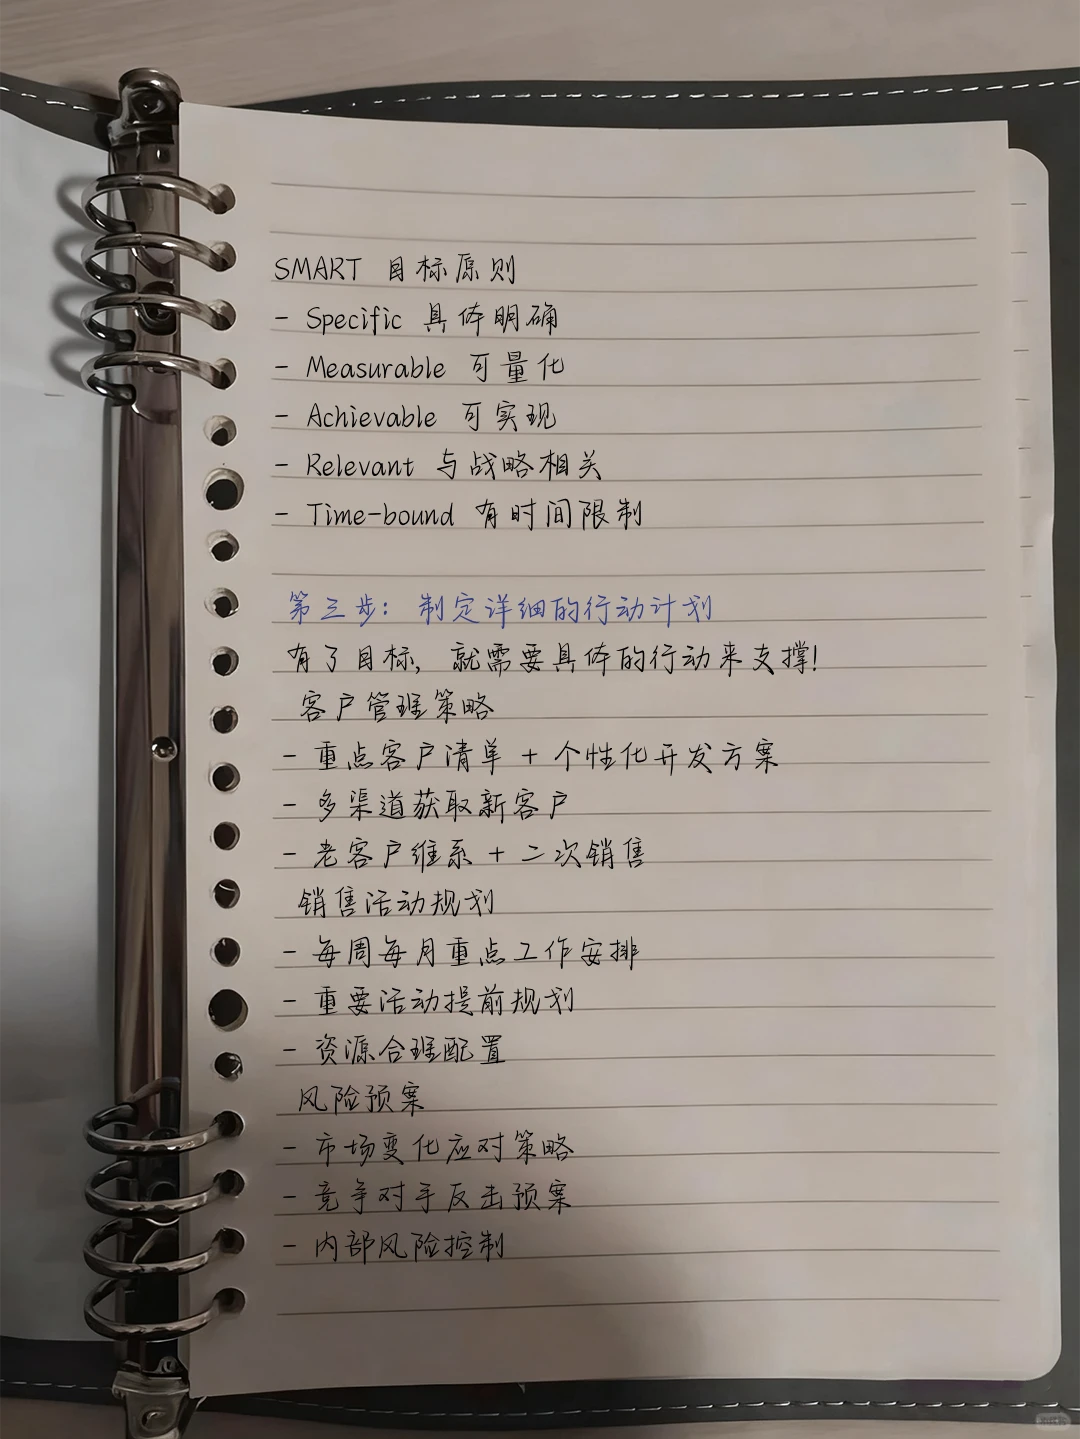 SMART 目标原则
- Specific 具体明确
- Measurable 可量化
- Achievable 可实现
- Relevant 与战略相关
- Time-bound 有时间限制
第三步: 制定详细的行动计划
有了目标, 就需要具体的行动来支撑!
客户管理策略
- 重点客户清单 + 个性化开发方案
- 多渠道获取新客户
- 老客户维系 + 二次销售
销售活动规划
- 每周每月重点工作安排
- 重要活动提前规划
- 资源合理配置
风险预案
- 市场变化应对策略
- 竞争对手反击预案
- 内部风险控制